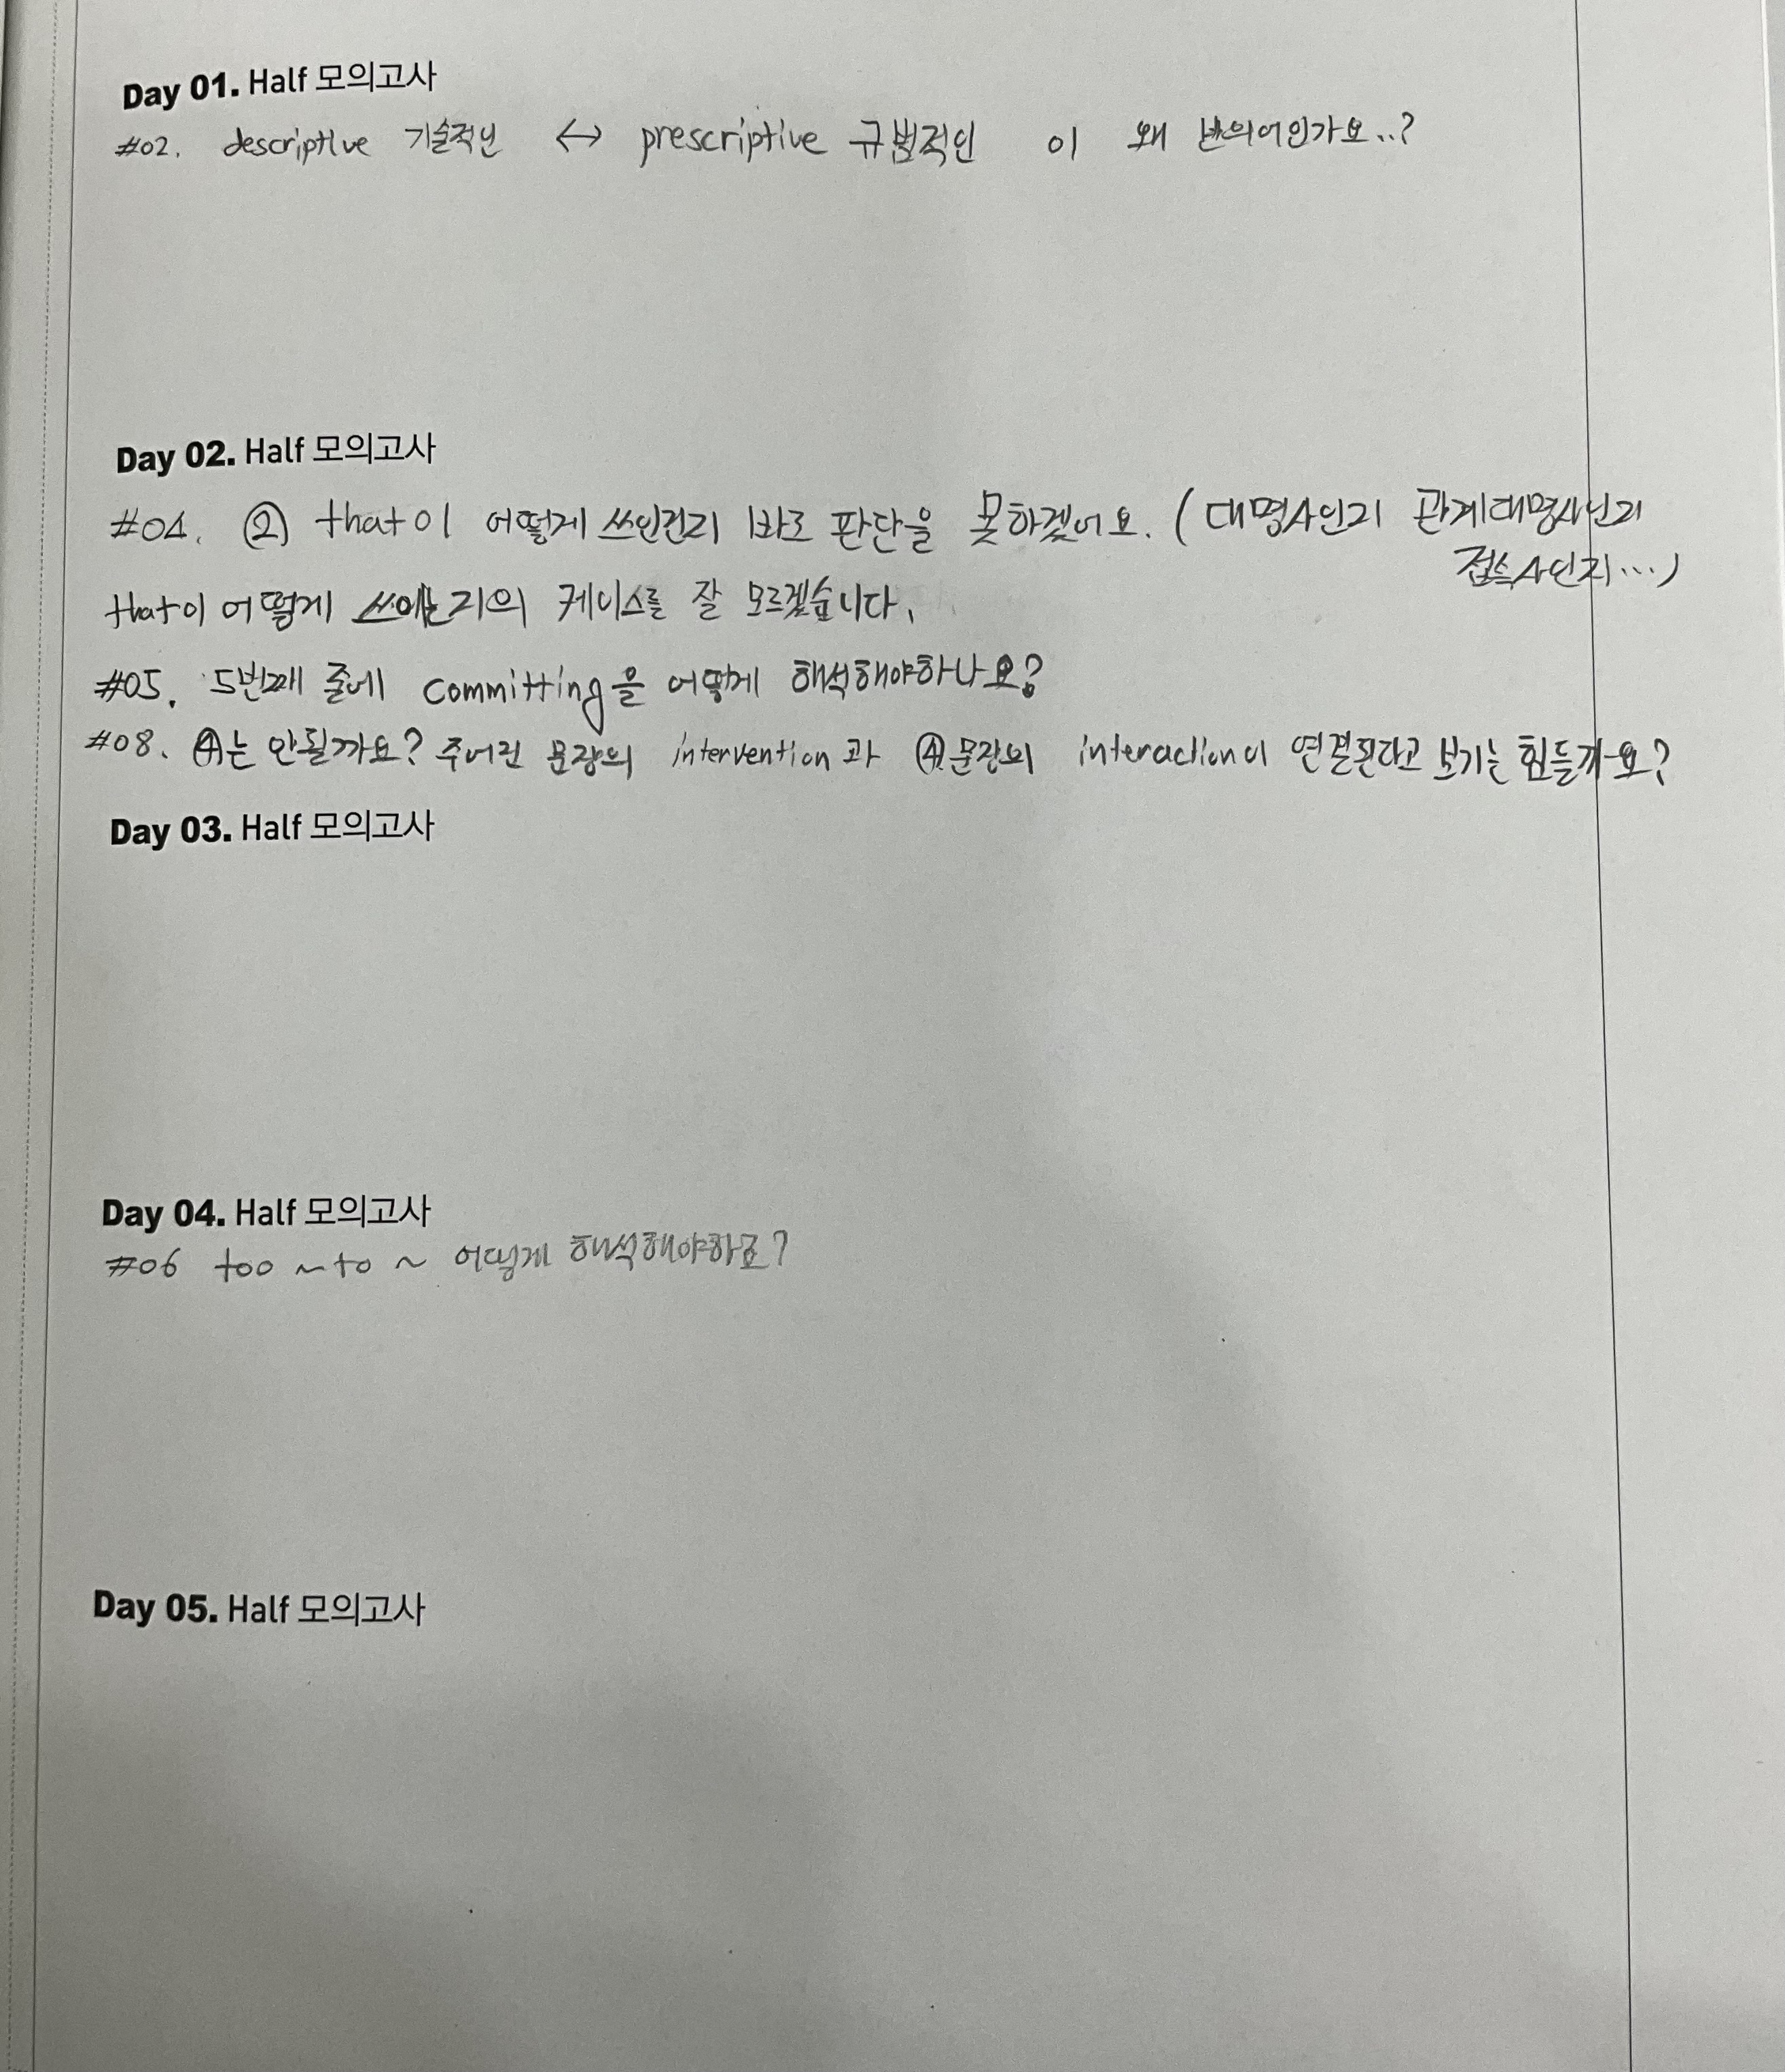 Day 01. Half 모의고사
#02. descriptive 기술적인 ↔ prescriptive 규범적인 이 왜 반의어인가요..?
Day 02. Half 모의고사
#04. ② that이 어떻게 쓰인건지 바로 판단을 못하겠어요. (대명사인지 관계대명사인지
접속사인지...)
that이 어떻게 쓰이는지의 케이스를 잘 모르겠습니다.
#05. 5번째 줄에 committing을 어떻게 해석해야하나요?
#08. ④는 안될까요? 주어진 문장의 intervention과 ④문장의 interaction이 연결된다고 보기는 힘들까요?
Day 03. Half 모의고사
Day 04. Half 모의고사
#06 too ~ to ~ 어떻게 해석해야하죠?
Day 05. Half 모의고사